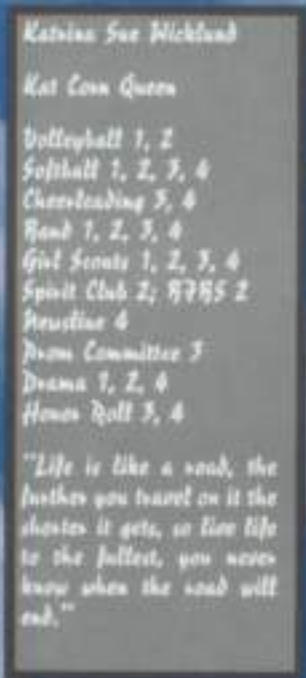 Katrina Sue Wicklund
Kat Corn Queen
Volleyball 1, 2
Softball 1, 2, 3, 4
Cheerleading 3, 4
Band 1, 2, 3, 4
Girl Scouts 1, 2, 3, 4
Spirit Club 2;
Newsline 4
Prom Committee 3
Drama 1, 2, 4
Honor Roll 3, 4
"Life is like a road, the
further you travel on it the
shorter it gets, so live life
to the fullest, you never
know when the road will
end."